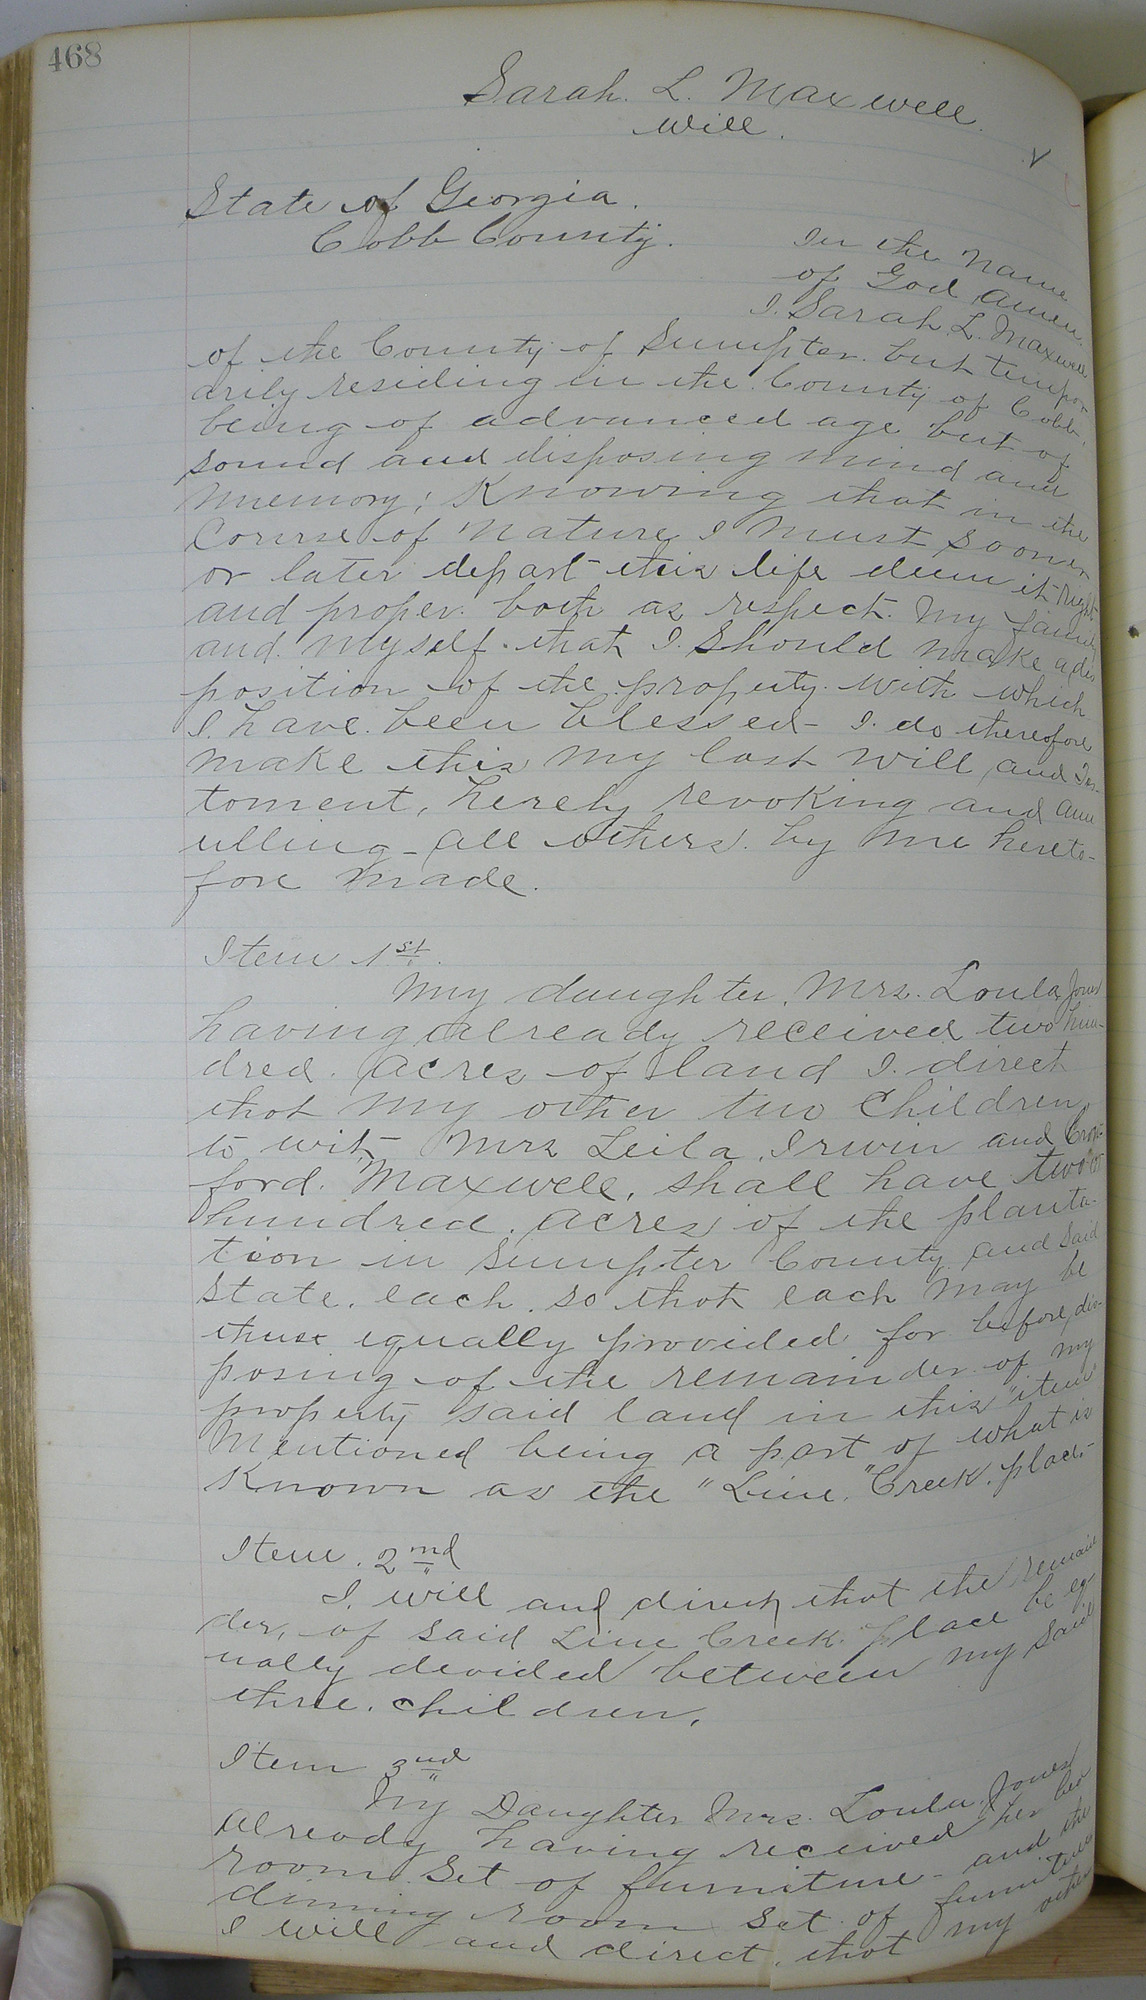 468
Sarah. L. Maxwell.
Will.
State of Georgia.
Cobb County.
In the name
of God Amen.
I. Sarah. L. Maxwell
of the County of Sumpter. but tempor
arily residing in the County of Cobb,
being of advanced age but of
sound and disposing mind and
memory; Knowing that in the
Course of nature I must sooner
or later depart this life deem it right
and proper. both as respect. my family
and. myself. that I. should make a dis
position of the property. with which
I. have. been blessed - I. do therefore
make this my last will and Tes-
toment, hereby revoking and ann
ulling - all others. by me hereto-
fore made.
Item 1st.
My daughter. Mrs. Loula Jones
having already received two hun-
dred. acres of land I. direct
that my other two children,
to wit, Mrs Leila. Irwin and Craw-
ford. Maxwell, shall have two
hundred. acres of the planta-
tion in Sumpter County and said
State. each. so that each may be
thus equally provided for before dis-
posing of the remainder of my
property said land in this "item"
Mentioned being a part of what is
Known as the "Line." Creek. place.
Item. 2nd
I. will and direct that the remain
der, of said Line Creek. place be eq
ually devided between my said
three. children,
Item 3nd
My Daughter Mrs. Loula. Jones
already having received her bed
room. Set of furniture - and the
dinning room set of furniture
I will and direct, that my other